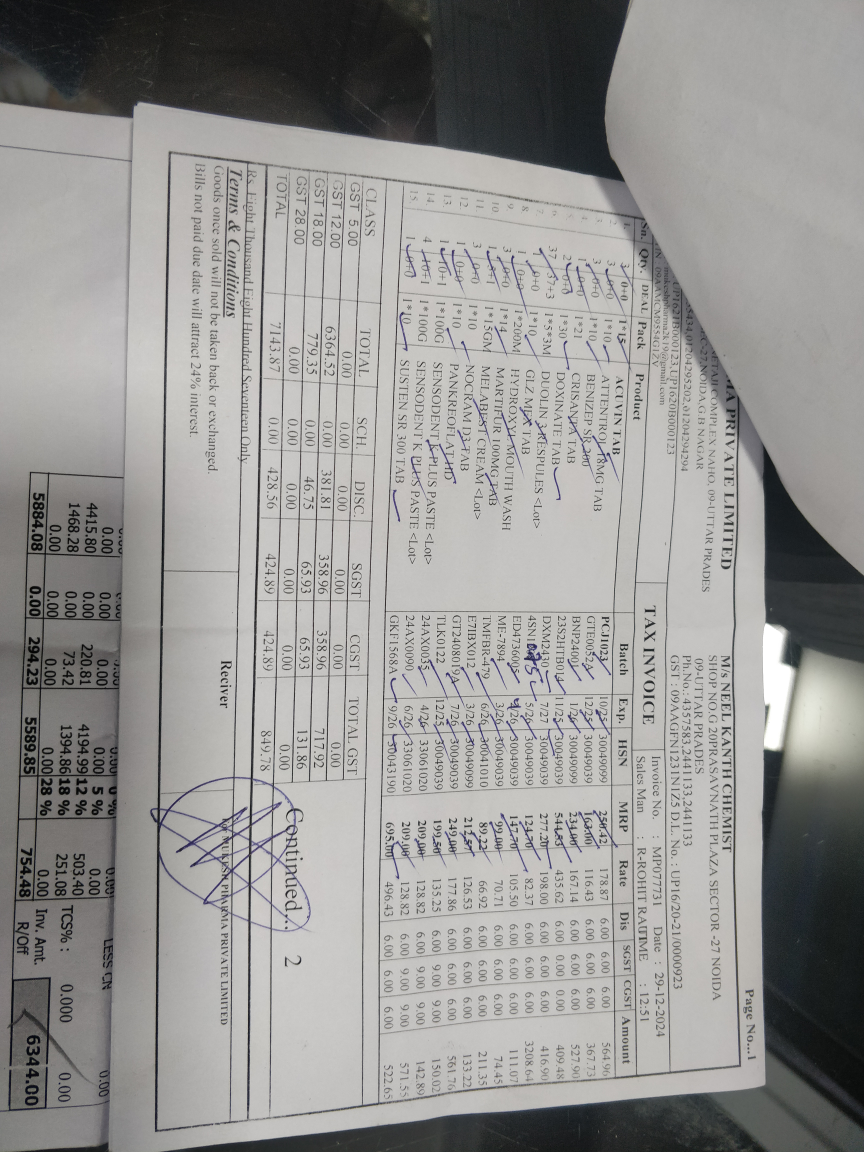 Page No...1
MA PRIVATE LIMITED
M/s NEEL KANTH CHEMIST
UTTAM COMPLEX NAHO, 09-UTTAR PRADES
SHOP NO.G 20PRASAVNATH PLAZA SECTOR -27 NOIDA
C-27,NOIDA,G.B.NAGAR
09-UTTAR PRADES
01204295202,01204294294
Ph.No.: 4357583,2441133,2441133
UP1621B000123,UP1620B000123
GST : 09AAGFN1231N1Z5 D.L. No.: UP16/20-21/0000923
2k19@gmail.com
TAX INVOICE
Invoice No. : MP077731 Date : 29-12-2024
Sales Man : R-ROHIT RAUTIME : 12:51
Sn. Qty. DEAL Pack Product Batch Exp. HSN MRP Rate Dis SGST CGST Amount
1. 3 0+0 1*15 ACUVIN TAB PCJ1023 10/25 30049099 250.42 178.87 6.00 6.00 6.00 564.96
2. 3 0+0 1*10 ATTENTROL 18MG TAB GTE0052A 12/25 30049039 163.00 116.43 6.00 6.00 6.00 367.73
3. 3 0+0 1*10 BENIZEP SR 200 BNP24001 1/26 30049099 234.00 167.14 6.00 6.00 6.00 527.90
4. 1 0+0 1*21 CRISANTA TAB 23S2HTB014 11/25 30049039 544.53 435.62 6.00 0.00 0.00 409.48
5. 2 0+0 1*30 DOXINATE TAB DXM2430 7/27 30049039 277.20 198.00 6.00 6.00 6.00 416.90
6. 37 37+3 1*5*3M DUOLIN 3 RESPULES <Lot> 5/26 30049039 82.37 6.00 6.00 6.00 3208.64
7. 1 0+0 1*10 GLZ MPX TAB ED4736005 4/26 30049039 147.70 105.50 6.00 6.00 6.00 111.07
8. 1 0+0 1*200M HYDROXYL MOUTH WASH ME-7894 3/26 30049039 99.00 70.71 6.00 6.00 6.00 74.45
9. 3 0+0 1*14 MARTIFUR 100MG TAB TMFBR-479 6/26 30041010 89.22 66.92 6.00 6.00 6.00 211.35
10. 1 8+1 1*15GM MELABEST CREAM <Lot> E7IBX012 3/26 30049099 212.57 126.53 6.00 6.00 6.00 133.22
11. 3 0+0 1*10 NOCRAM D3 TAB GT2408019A 7/26 30049039 249.00 177.86 6.00 6.00 6.00 561.76
12. 1 0+0 1*10 PANKREOFLAT HD TLK0122 12/25 30049039 199.50 135.25 6.00 9.00 9.00 150.02
13. 1 10+1 1*100G SENSODENT K PLUS PASTE <Lot> 24AX0035 4/26 33061020 209.00 128.82 6.00 9.00 9.00 142.89
14. 4 10+1 1*100G SENSODENT K PLUS PASTE <Lot> 24AX0090 6/26 33061020 209.00 128.82 6.00 9.00 9.00 571.55
15. 1 0+0 1*10 SUSTEN SR 300 TAB GKF1568A 9/26 30043190 695.00 496.43 6.00 6.00 6.00 522.65
CLASS TOTAL SCH. DISC. SGST CGST TOTAL GST
GST 5.00 0.00 0.00 0.00 0.00 0.00 0.00
GST 12.00 6364.52 0.00 381.81 358.96 358.96 717.92
GST 18.00 779.35 0.00 46.75 65.93 65.93 131.86
GST 28.00 0.00 0.00 0.00 0.00 0.00 0.00
TOTAL 7143.87 0.00 428.56 424.89 424.89 849.78
Continued... 2
Rs. Eight Thousand Eight Hundred Seventeen Only
Terms & Conditions
Goods once sold will not be taken back or exchanged.
Bills not paid due date will attract 24% interest.
Reciver
For MUKESH PHARMA PRIVATE LIMITED
LESS CN 0.00
0.00 0.00 0.00 0.00 5 % 0.00
4415.80 0.00 220.81 4194.99 12 % 503.40 TCS% : 0.000 0.00
1468.28 0.00 73.42 1394.86 18 % 251.08
0.00 0.00 0.00 0.00 28 % 0.00 Inv. Amt.
5884.08 0.00 294.23 5589.85 754.48 R/Off 6344.00